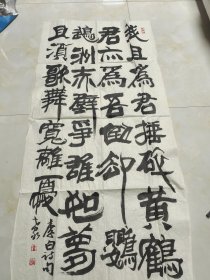 我且為君捶碎黄鶴
君亦為吾倒却鸚
鵡洲赤壁爭雄如夢
且須歌舞寬離憂
李白詩句